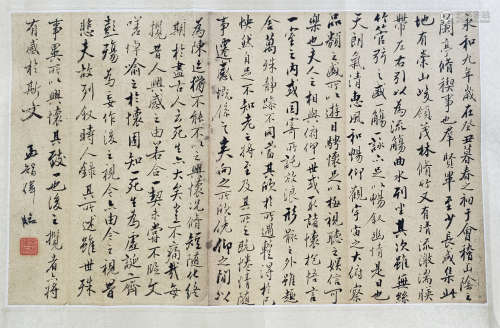 永和九年歲在癸丑暮春之初于會稽山陰之
蘭亭脩稧事也群賢畢至少長咸集此
地有崇山峻領茂林脩竹又有清流激湍暎
帶左右引以為流觴曲水列坐其次雖無絲
竹管弦之盛一觴一詠亦足以暢敘幽情是日也
天朗氣清惠風和暢仰觀宇宙之大俯察
品類之盛所以遊目騁懷足以極視聽之娛信可
樂也夫人之相與俯仰一世或取諸懷抱悟言
一室之內或因寄所託放浪形骸之外雖趣
舍萬殊靜躁不同當其欣於所遇蹔得於
己快然自足不知老之將至及其所之既倦情隨
事遷感慨係之矣向之所欣俛仰之間以
為陳迹猶不能不以之興懷況脩短隨化終
期於盡古人云死生亦大矣豈不痛哉每
攬昔人興感之由若合一契未嘗不臨文
嗟悼不能喻之於懷固知一死生為虛誕齊
彭殤為妄作後之視今亦由今之視昔
悲夫故列敘時人錄其所述雖世殊
事異所以興懷其致一也後之攬者亦將
有感於斯文
孟智偉臨